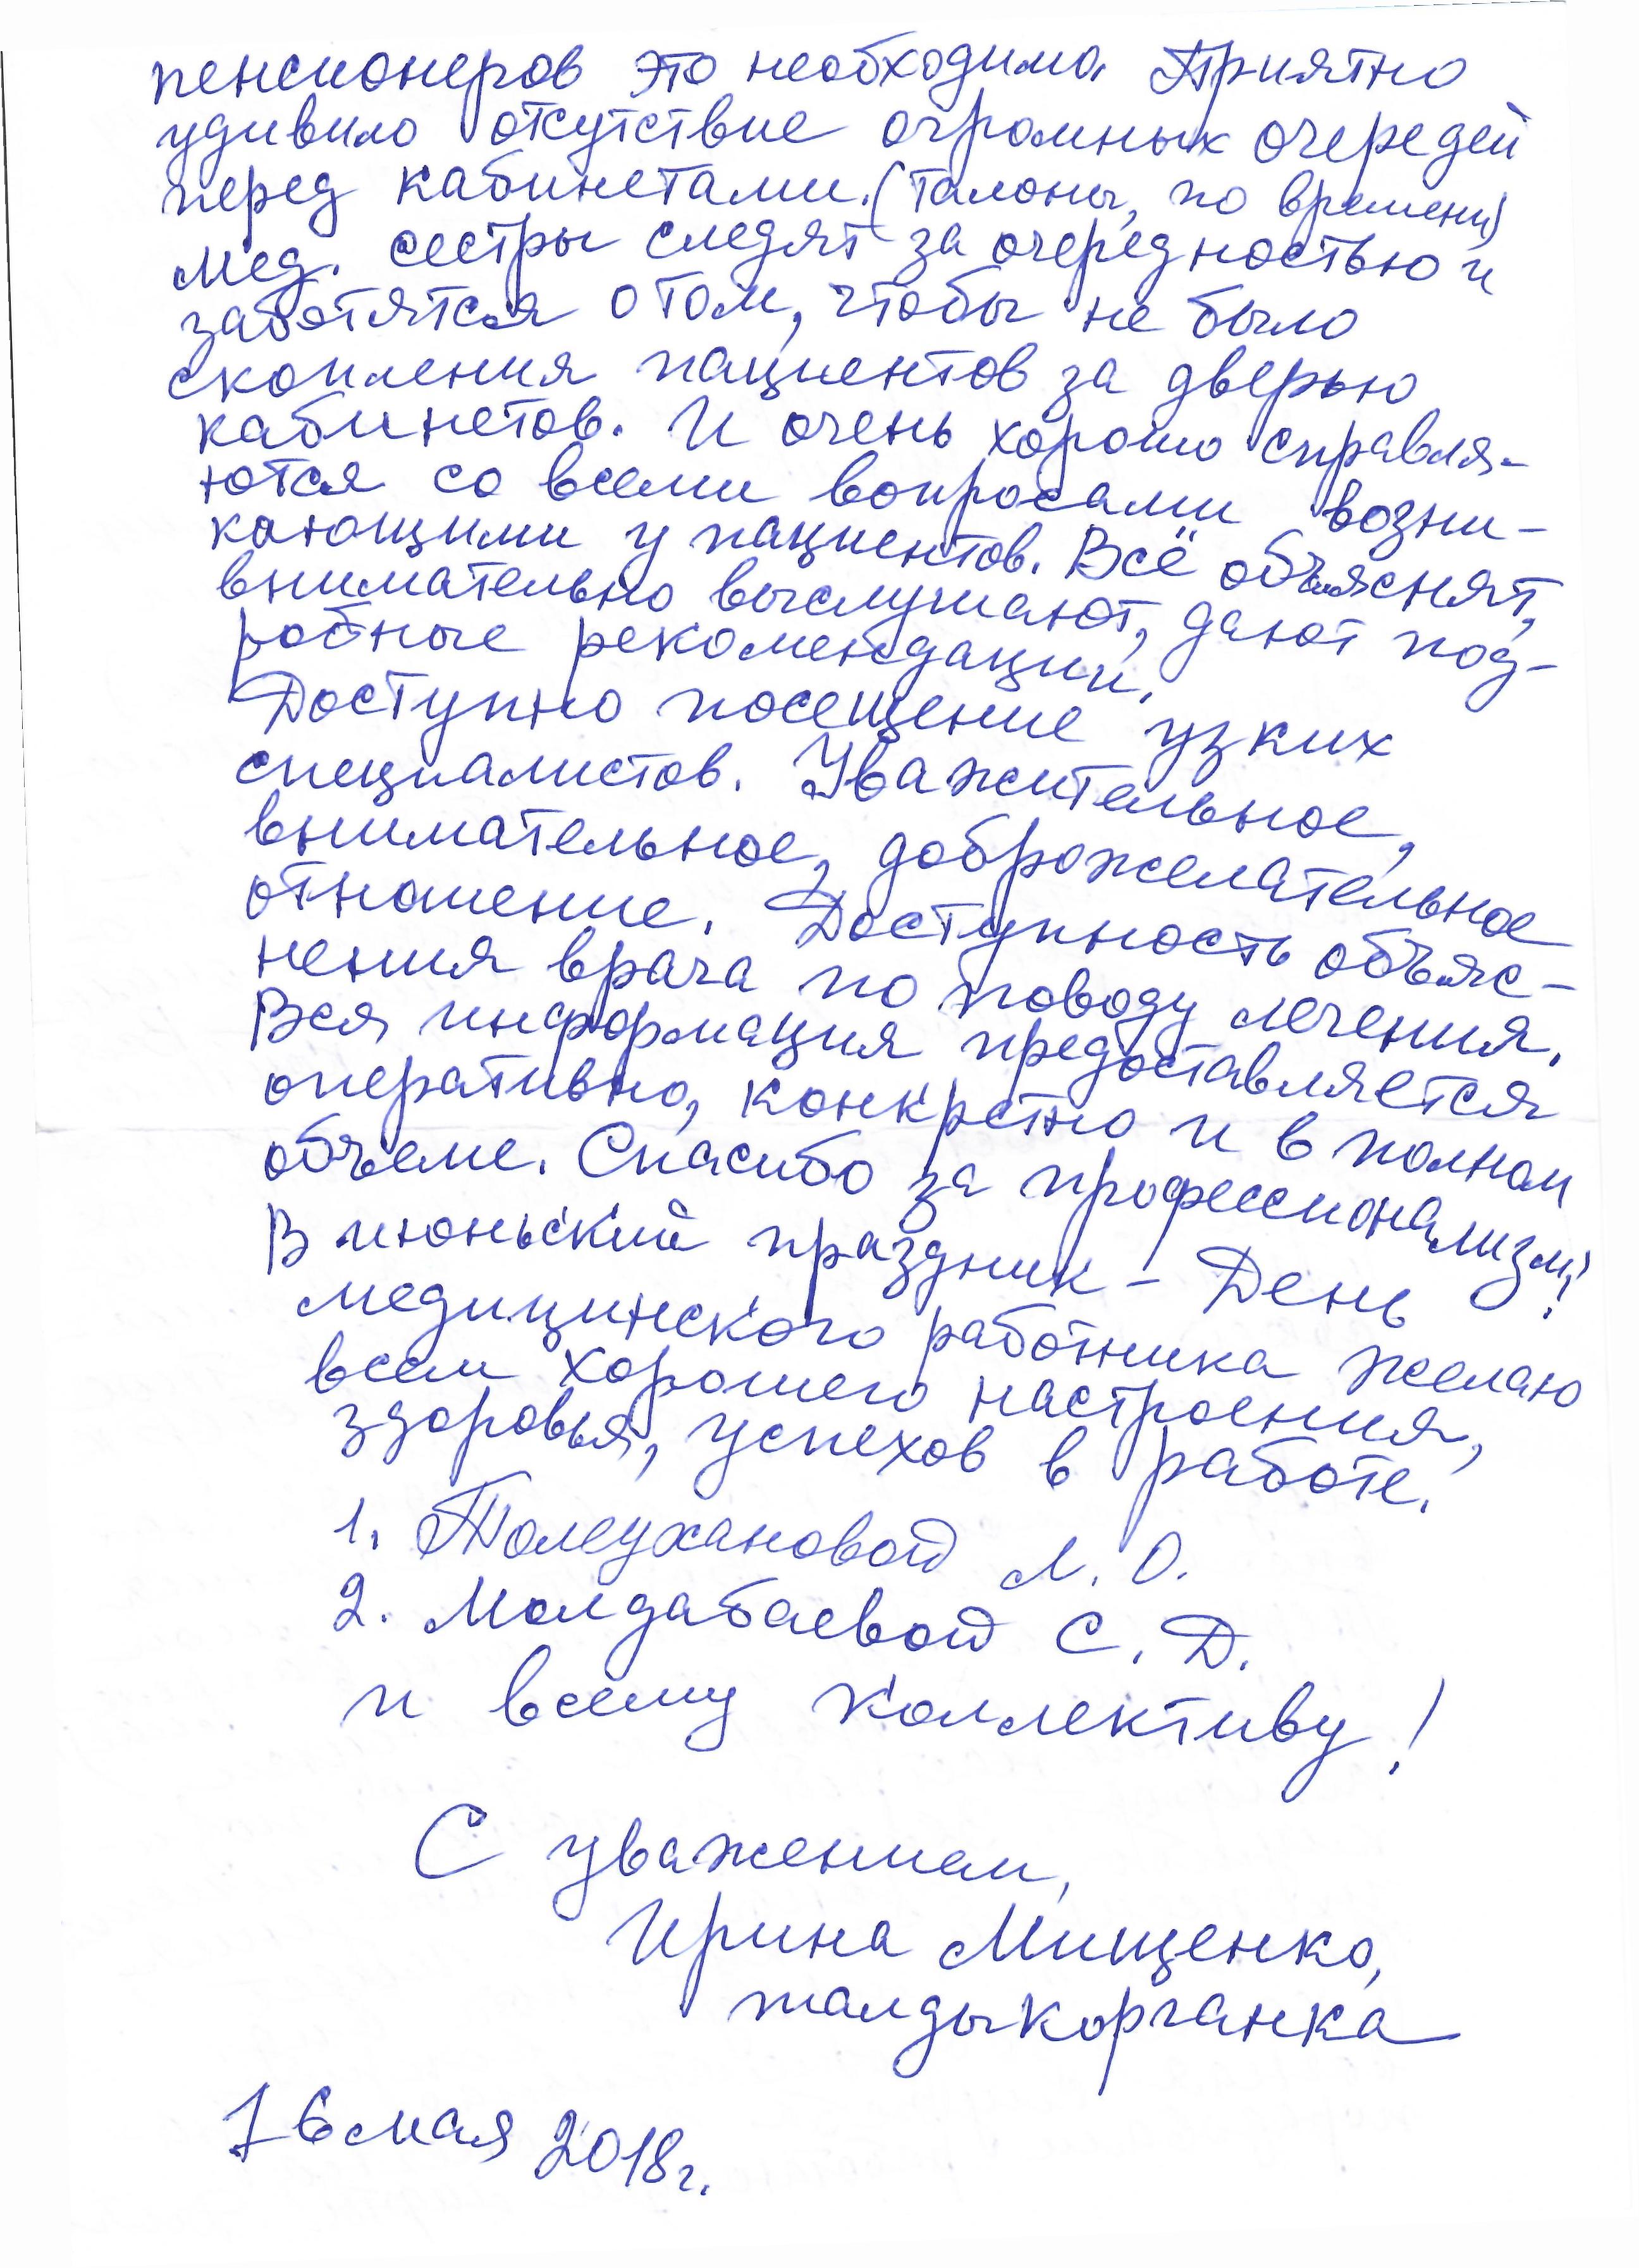 пенсионеров это необходимо. Приятно
удивило отсутствие огромных очередей
перед кабинетами. (талоны, по времени)
Мед. сестры следят за очередностью и
заботятся о том, чтобы не было
скопления пациентов за дверью
кабинетов. И очень хорошо справля-
ются со всеми вопросами возни-
кающими у пациентов. Всё объяснят,
внимательно выслушают, дают под-
робные рекомендации.
Доступно посещение узких
специалистов. Уважительное,
внимательное, доброжелательное
отношение. Доступность объяс-
нения врача по поводу лечения.
Вся информация предоставляется
оперативно, конкретно и в полном
объеме. Спасибо за профессионализм!
В июньский праздник - День
медицинского работника желаю
всем хорошего настроения,
здоровья, успехов в работе.
1. Толеухановой Л. О.
2. Молдабаевой С. Д.
и всему коллективу!
С уважением,
Ирина Мищенко,
талдыкорганка
16 мая 2018г.